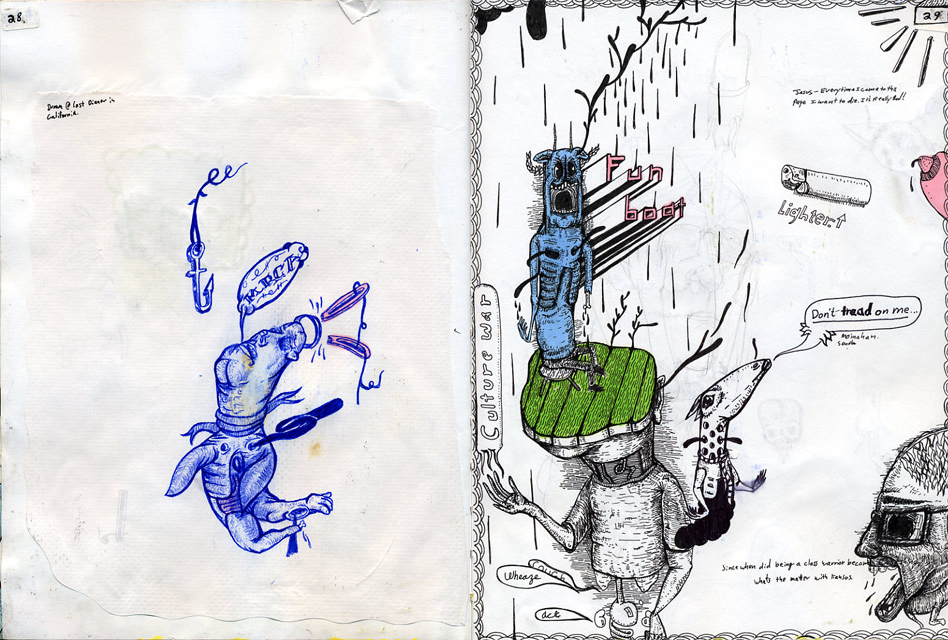 28.
Drawn @ Last Dinner in
California.
29
Jesus - Everytime I come to the
Pope I want to die. It's really Bad!
Fun
boat
Lighter↑
Culture war
Don't tread on me...
South
Since when did being a class warrior become
whats the matter with Kansas.
Wheeze
Cough
ack